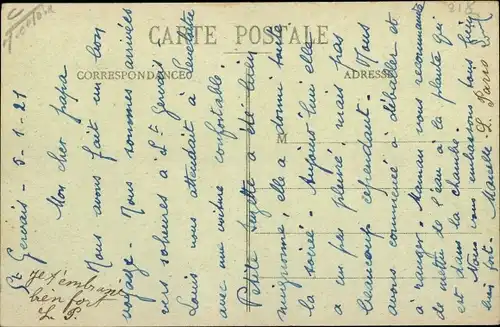 CARTE POSTALE
CORRESPONDANCE
ADRESSE
M
St Gervais - 5-1-21
Mon cher papa
Nous avons fait un bon
voyage. Nous sommes arrivés
vers 10 heures à St Gervais
Louis nous attendait à
avec une voiture confortable.
Petite Suzette a été bien
mignonne, elle a dormi toute
la soirée. Aujourd'hui elle
a un peu pleuré, mais pas
beaucoup cependant. Nous
avons commencé à déballer et
à ranger. Maman vous recommande
de mettre de l'eau à la plante qui
est dans la chambre.
Nous vous embrassons tous bien
bien fort.
Je t'embrasse
bien fort
L. P.